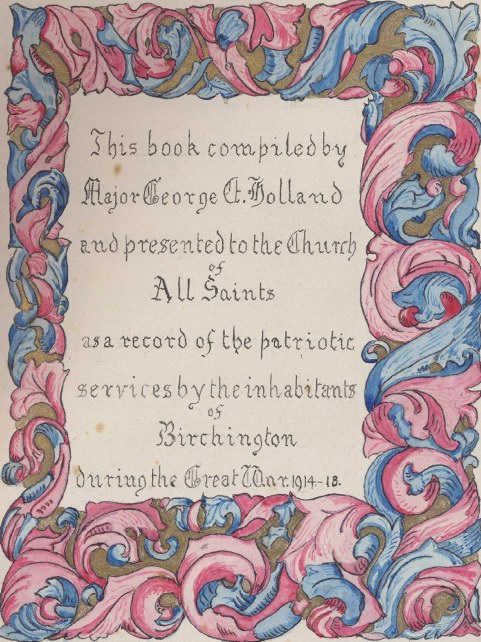 This book compiled by
Major George E. Holland
and presented to the Church
of
All Saints
as a record of the patriotic
services by the inhabitants
of
Birchington
during the Great War. 1914-18.